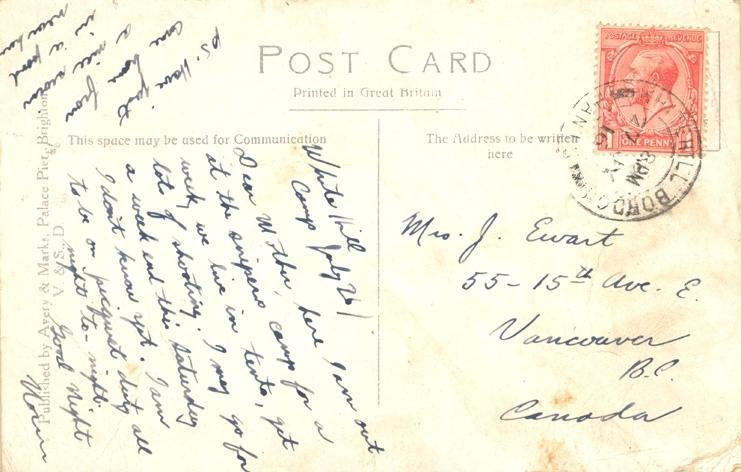 POST CARD
Printed in Great Britain
This space may be used for Communication
The Address to be written
here
POSTAGE REVENUE
ONE PENNY
BORDON
8 PM
Mrs. J. Ewart
55 - 15th Ave. E.
Vancouver
B.C.
Canada
White Hill
Camp July 26/
Dear Mother, here I am out
at the snipers camp for a
week, we live in tents, get
lot of shooting. I may go for
a week end this Saturday
I don't know yet. I am
to be on picquet duty all
night to-night.
Good Night
PS. Have just
come from
a nice swim
in a pond
near here
Published by Avery & Marks, Palace Pier, Brighton
V. & S., D.